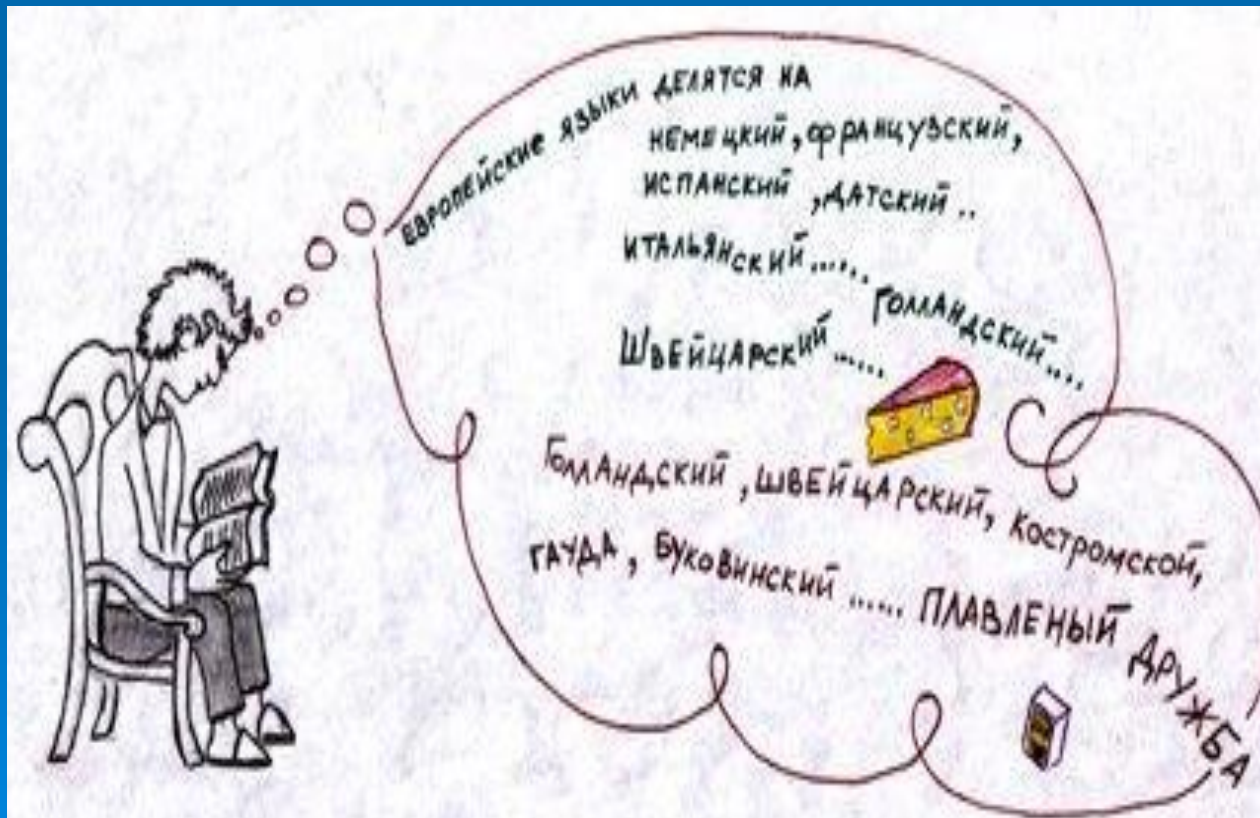 ЕВРОПЕЙСКИЕ ЯЗЫКИ ДЕЛЯТСЯ НА
НЕМЕЦКИЙ, ФРАНЦУЗСКИЙ,
ИСПАНСКИЙ, ДАТСКИЙ..
ИТАЛЬЯНСКИЙ...... ГОЛЛАНДСКИЙ....
ШВЕЙЦАРСКИЙ......
ГОЛЛАНДСКИЙ, ШВЕЙЦАРСКИЙ, КОСТРОМСКОЙ,
ГАУДА, БУКОВИНСКИЙ...... ПЛАВЛЕНЫЙ ДРУЖБА